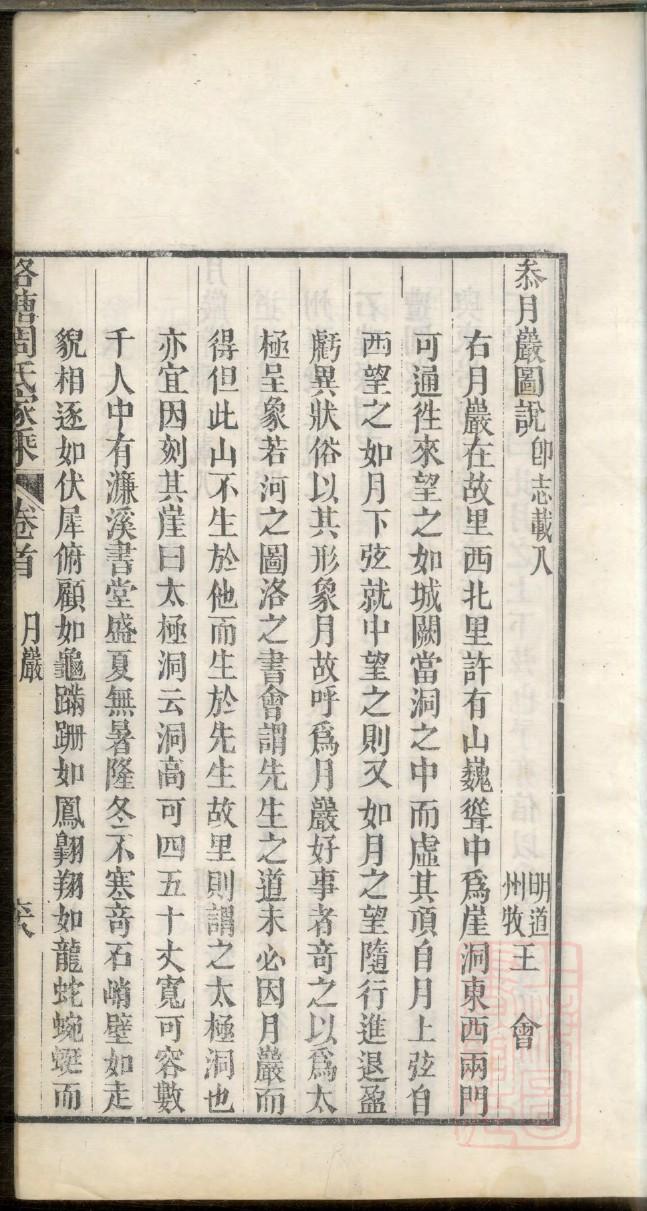 叅月巖圖說卽志載入
明道州牧王會
右月巖在故里西北里許有山巍聳中爲崖洞東西兩門
可通徃來望之如城闕當洞之中而虛其頂自月上弦自
西望之如月下弦就中望之則又如月之望隨行進退盈
虧異狀俗以其形象月故呼爲月巖好事者竒之以爲太
極呈象若河之圖洛之書會謂先生之道未必因月巖而
得但此山不生於他而生於先生故里則謂之太極洞也
亦宜因刻其崖曰太極洞云洞高可四五十丈寬可容數
千人中有濂溪書堂盛夏無暑隆冬不寒竒石峭壁如走
貌相逐如伏犀俯顧如龜蹣跚如鳳翺翔如龍蛇蜿蜒而
周氏家乘 卷首 月巖 六